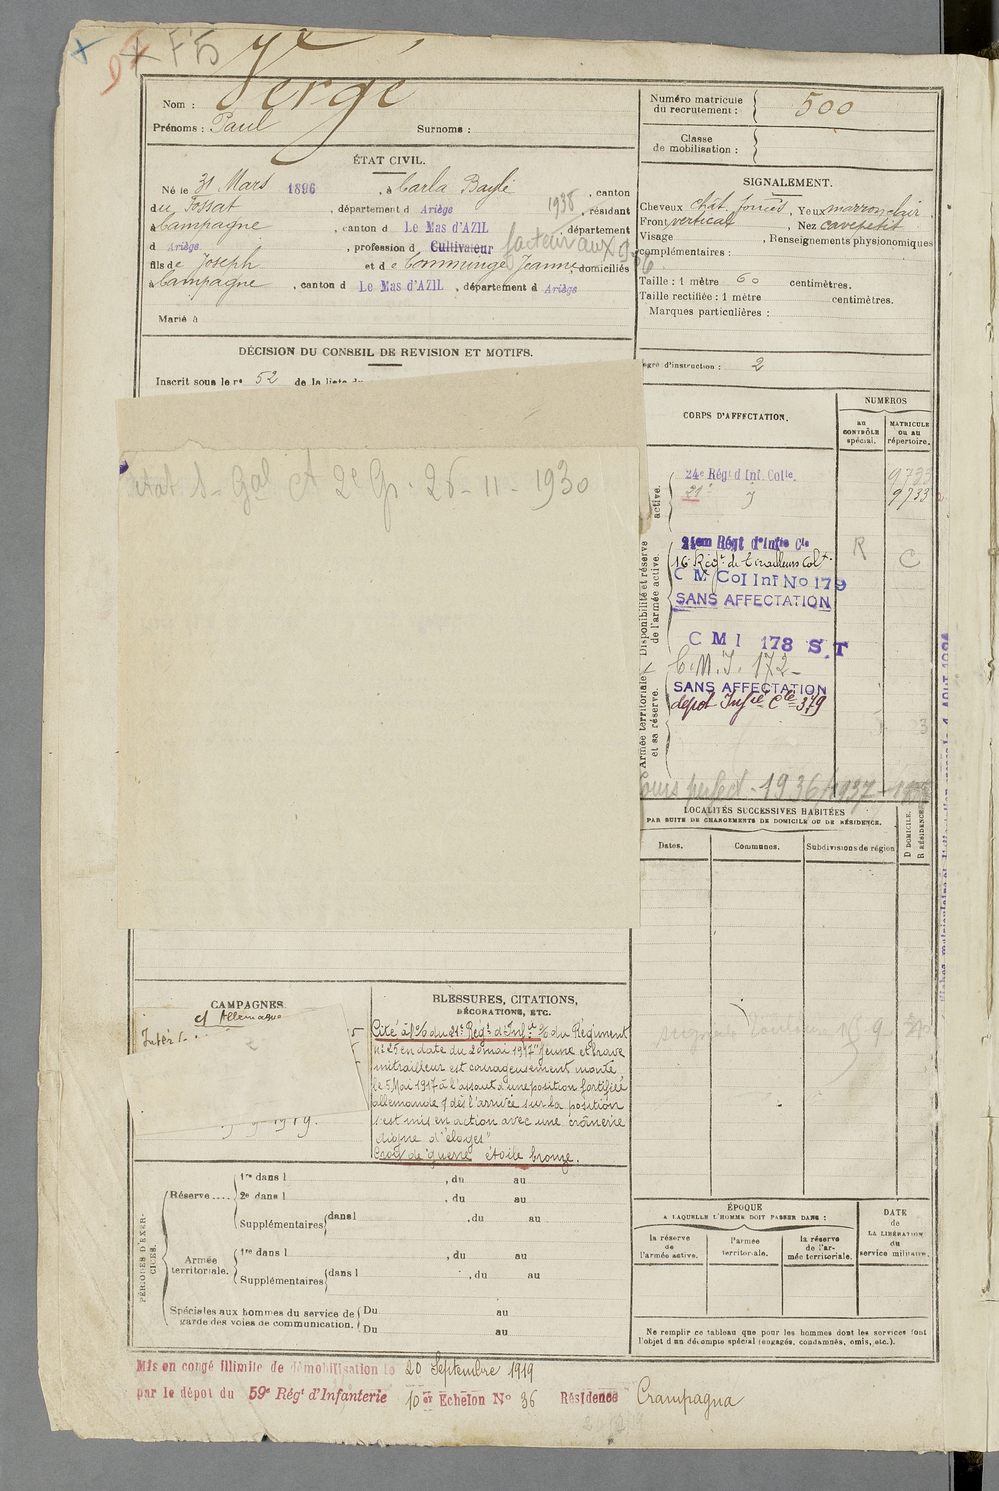 FB
Nom : Vergé
Prénoms : Paul Surnoms :
Numéro matricule
du recrutement : 500
Classe
de mobilisation :
ÉTAT CIVIL.
Né le 31 Mars 1896, à Carla Bayle, canton
du Fossat, département d Ariège 1938, résidant
à Campagne, canton d Le Mas d'AZIL, département
d Ariège, profession d Cultivateur facteur aux
fils de Joseph et de Comminge Jeanne, domiciliés
à Campagne, canton d Le Mas d'AZIL, département d Ariège
Marié à
SIGNALEMENT.
Cheveux chât. foncés, Yeux marron clair
Front vertical, Nez cave petit
Visage, Renseignements physionomiques
complémentaires :
Taille : 1 mètre 60 centimètres.
Taille rectifiée : 1 mètre centimètres.
Marques particulières :
DÉCISION DU CONSEIL DE REVISION ET MOTIFS.
Inscrit sous le n° 52 de la liste d
egré d'instruction : 2
Gal et 2e Gr. 26-11-1930
CORPS D'AFFECTATION.
NUMÉROS
au
CONTRÔLE
spécial.
MATRICULE
ou au
répertoire.
active.
24e Régt d Inf. Colle. 9733
21e 9733
Disponibilité et réserve
de l'armée active.
24em Régt d'Infie Cle
16e Régt de Tirailleurs Colx R C
C M Col Inf No 179
SANS AFFECTATION
Armée territoriale
et sa réserve.
C M I 178 S.T
C.M.I. 172
SANS AFFECTATION
dépot Infie Cle 379
Cours perfect - 1936/1937
LOCALITÉS SUCCESSIVES HABITÉES
PAR SUITE DE CHANGEMENTS DE DOMICILE OU DE RÉSIDENCE.
Dates. Communes. Subdivisions de région
D DOMICILE.
R RÉSIDENCE.
CAMPAGNES
cf Allemagne
Intér
1919.
BLESSURES, CITATIONS,
DÉCORATIONS, ETC.
Cité à l'o/d du 21e Régt d'Infie o/ du Régiment
n° 25 en date du 20 mai 1917 "Jeune et brave
mitrailleur est courageusement monté
le 5 Mai 1917 à l'assaut d'une position fortifiée
allemande & dès l'arrivée sur la position
s'est mis en action avec une crânerie
digne d'éloges"
Croix de guerre étoile bronze.
PÉRIODES D'EXERCICES.
Réserve.... 1re dans l , du au
2e dans l , du au
Supplémentaires dans l , du au
Armée
territoriale. 1re dans l , du au
Supplémentaires dans l , du au
Spéciales aux hommes du service de
garde des voies de communication. Du au
Du au
ÉPOQUE
A LAQUELLE L'HOMME DOIT PASSER DANS :
la réserve
de
l'armée active.
l'armée
territoriale.
la réserve
de l'ar-
mée territoriale.
DATE
de
LA LIBÉRATION
du
service militaire.
Ne remplir ce tableau que pour les hommes dont les services font
l'objet d'un décompte spécial (engagés, condamnés, omis, etc.).
Mis en congé illimité de démobilisation le 20 Septembre 1919
par le dépot du 59e Régt d'Infanterie 10er Echelon N° 36 Résidence Crampagna